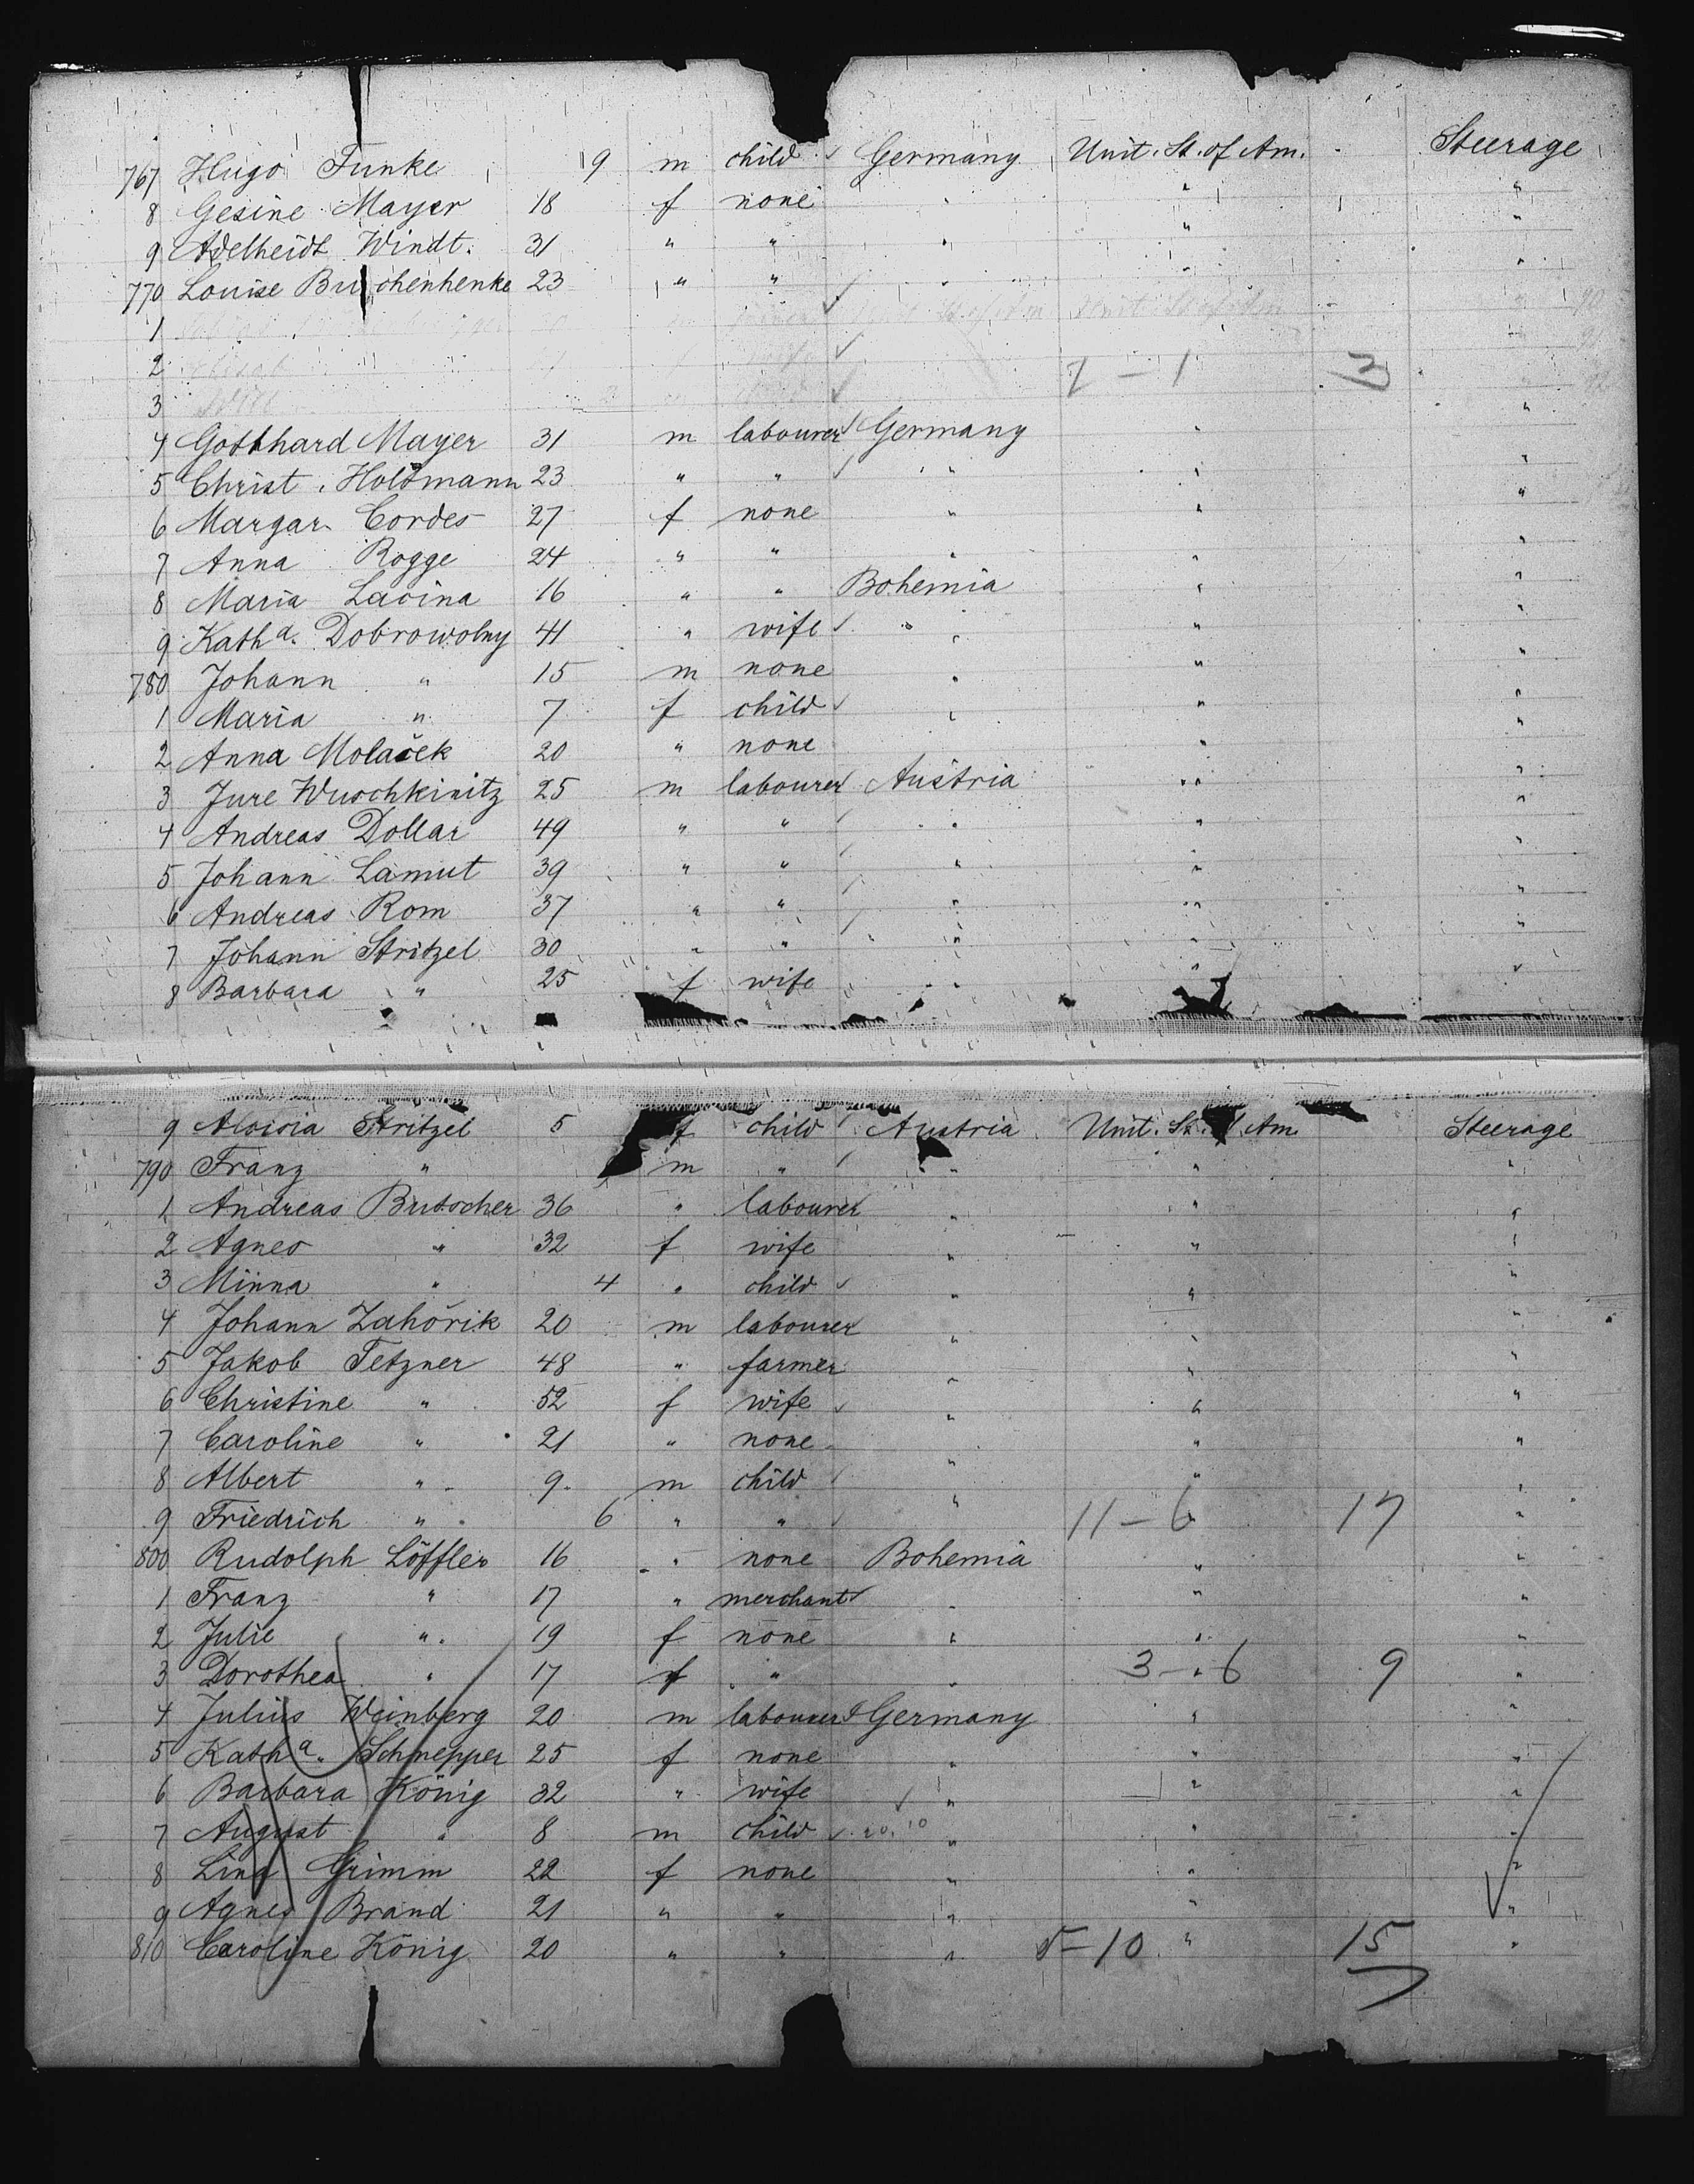 767 Hugo Funke 9 m child ✓ Germany Unit. St. of Am. Steerage
8 Gesine Mayer 18 f none " " "
9 Adelheidt Windt. 31 " " " " "
770 Louise Buschenhenke 23 " " " " "
1 Unit. St. of Am Unit. St. of Am " 90
2 wife ✓ 91
3 ✓ 2 – 1 3 "
4 Gotthard Mayer 31 m labourer ✓ Germany " "
5 Christ. Holtmann 23 " " ✓ " " "
6 Margar. Cordes 27 f none " " "
7 Anna Rogge 24 " " " " "
8 Maria Lacina 16 " " Bohemia " "
9 Kath a. Dobrowolny 41 " wife ✓ " " "
780 Johann " 15 m none " " "
1 Maria " 7 f child ✓ " " "
2 Anna Molaček 20 " none " " "
3 Jure Wuschkinitz 25 m labourer ✓ Austria " "
4 Andreas Dollar 49 " " ✓ " " "
5 Johann Lamut 39 " " ✓ " " "
6 Andreas Rom 37 " " ✓ " " "
7 Johann Stritzel 30 " " ✓ " " "
8 Barbara " 25 f wife " " "
9 Aloisia Stritzel 5 f child ✓ Austria Unit. St. Am. Steerage
790 Franz " m " ✓ " " "
1 Andreas Butscher 36 " labourer " " "
2 Agnes " 32 f wife " " "
3 Minna " 4 " child ✓ " " "
4 Johann Zahořik 20 m labourer " " "
5 Jakob Tetzner 48 " farmer " " "
6 Christine " 52 f wife ✓ " " "
7 Caroline " 21 " none " " "
8 Albert " 9 m child ✓ " " "
9 Friedrich " 6 " " ✓ " 11 – 6 17 "
800 Rudolph Löffler 16 " none Bohemia " "
1 Franz " 17 " merchant ✓ " " "
2 Julie " 19 f none " " "
3 Dorothea " 17 f " " 3 – 6 9 "
4 Julius Weinberg 20 m labourer ✓ Germany " "
5 Kath a. Schnepper 25 f none " " "
6 Barbara König 32 " wife ✓ " " "
7 August " 8 m child ✓ " " "
8 Lina Grimm 22 f none " " "
9 Agnes Brand 21 " " " " "
810 Caroline König 20 " " " 5 – 10 " 15 "